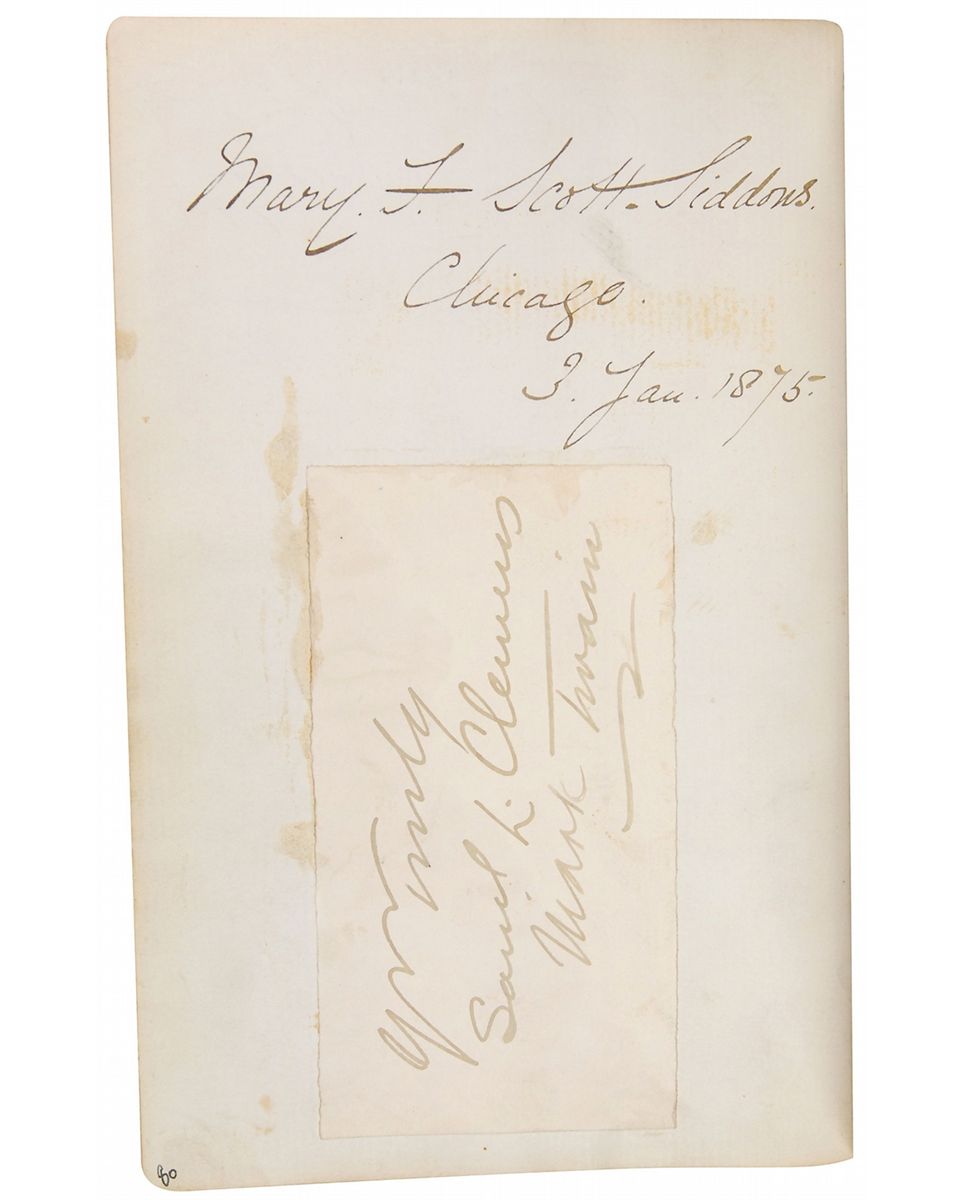 Mary. F. Scott-Siddons.
Chicago.
3. Jan. 1875.
Yrs Truly
Saml L. Clemens
Mark Twain
80